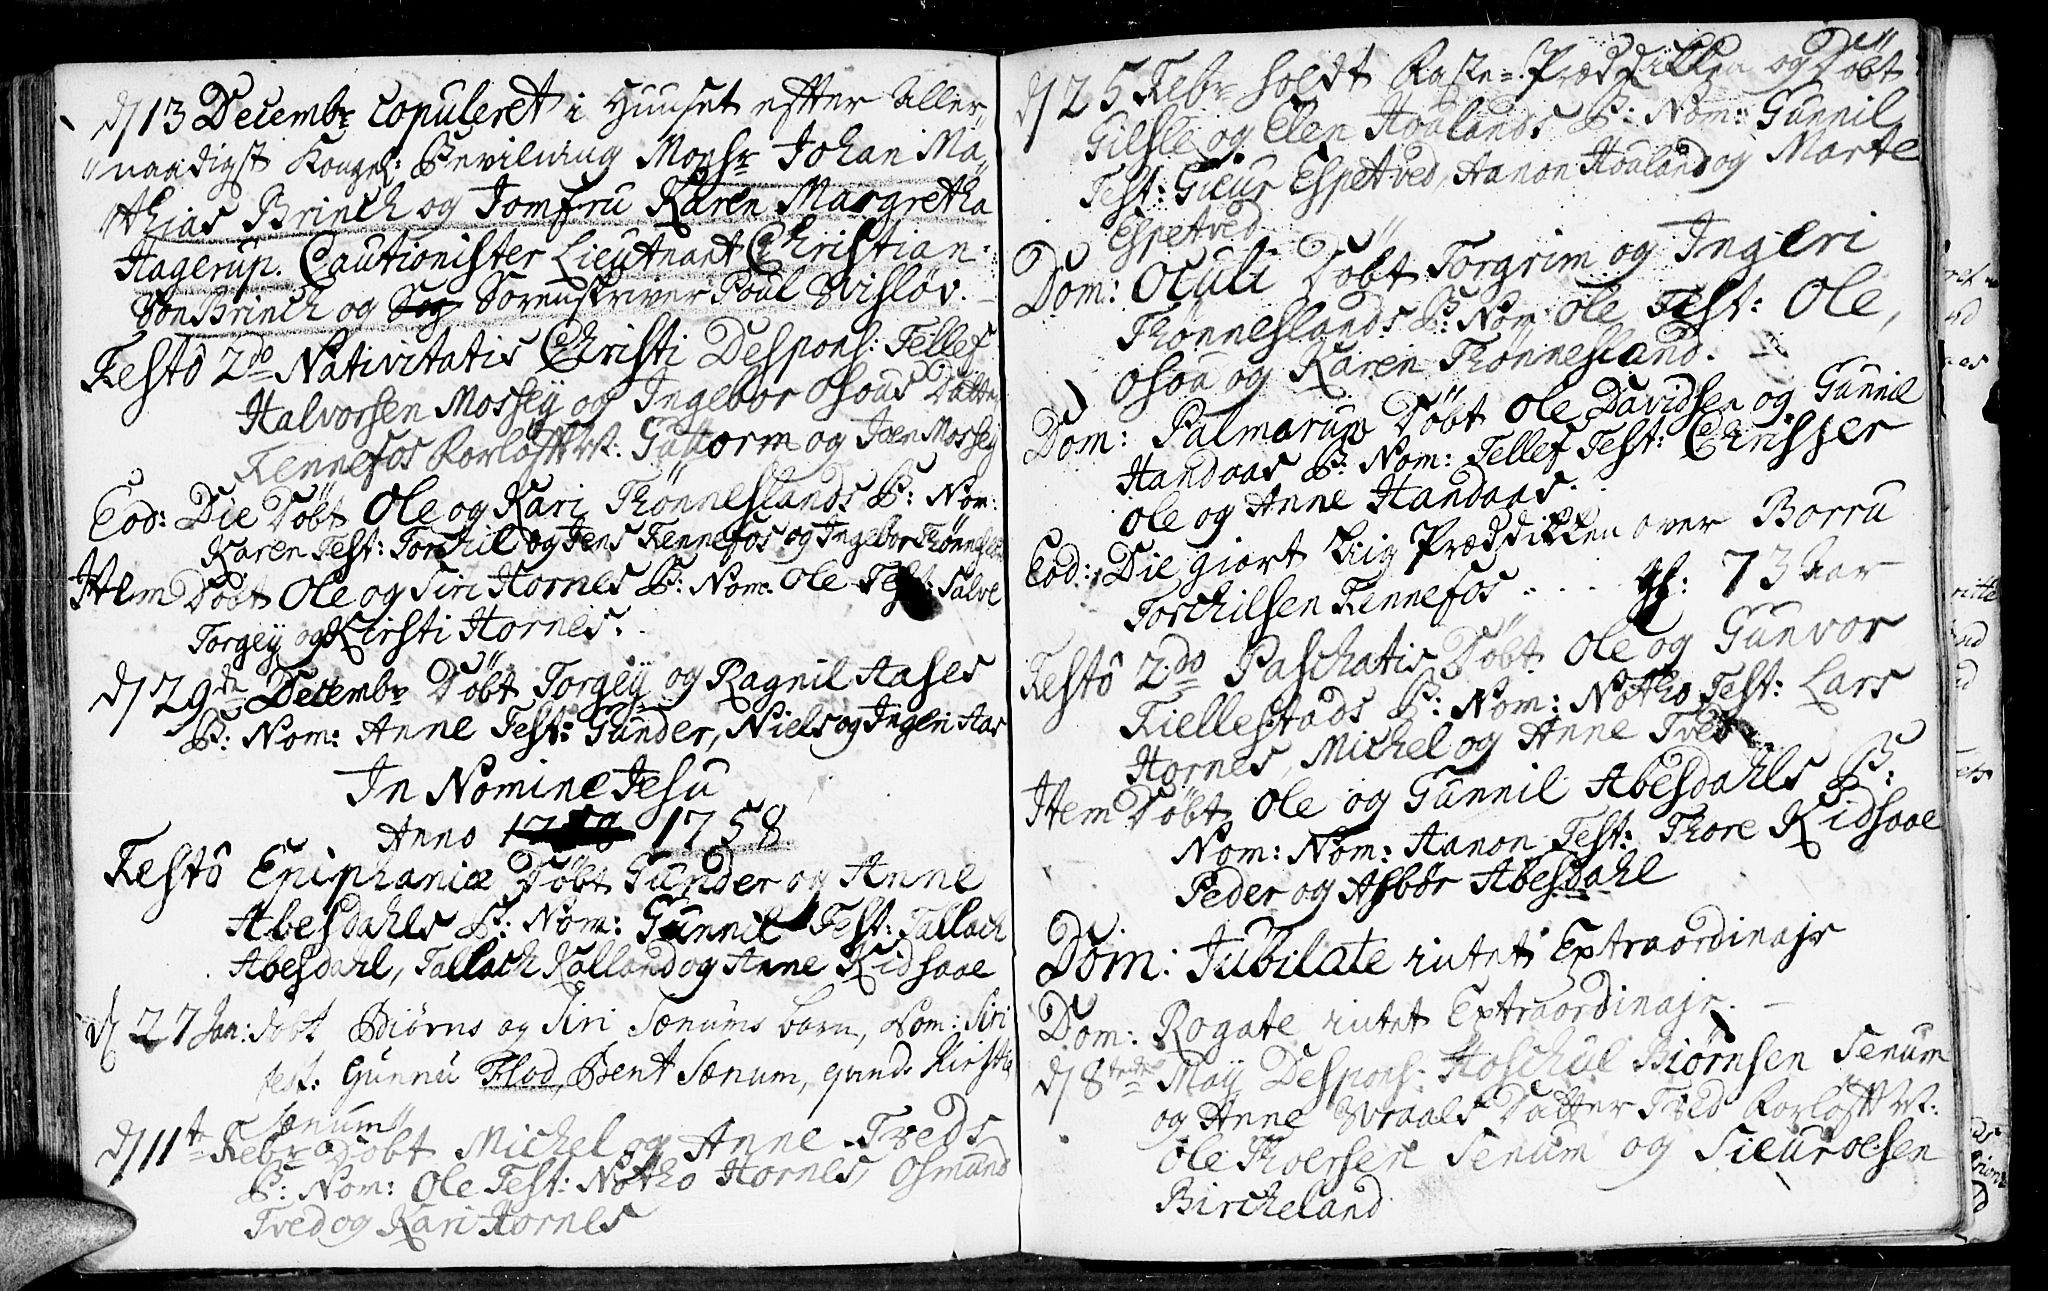 d/ 13 Decembr copuleret i Huuset efter Aller,,
,,naadigst Kongel: Bevilning Monsr Johan Ma,,
thias Brinch og Jomfru Karen Margretha
Hagerup. Cautionister Lieutnant Christian
von Brinch og Sorenskriver Poul Wisløv.
Festô 2do Nativitatis Christi Despons: Tellef
Halvorsen Mossey og Ingebor Osous Datter
Fennefos Forløft W: Guttorm og Joen Mossey
Eod: Die Døbt Ole og Kari Thønneslands B: Nom:
Karen Test: Torchil og Jens Fennefos og Ingebor Thønnesland
Item Døbt Ole og Siri Hornes B: Nom: Ole Test: Salve
Torgey og Kirsti Hornes.
d/ 29de Decembr Døbt Torgey og Ragnil Aases
B: Nom: Anne Test: Gunder, Niels og Ingeri Aas
In Nomine Jesu
Anno 1758
Festô Epiphaniæ Døbt Gunder og Anne
Abesdahls B: Nom: Gunnil Test: Tallach
Abesdahl, Tallach Kalland og Anne Kidsaae
d/ 27 Jan: døbt Biørns og Siri Sænums barn, Nom: Siri
test: Gunnu Flod, Bent Sænum, Kirstie
Sænum
d/ 11t Febr Døbt Michel og Anne Tveds
B: Nom: Ole Test: Notho Hornes, Osmund
Tved og Kari Hornes
d/ 25 Febr holdt Faste-Præddikken og Døbt
Gilsle og Elen Houlands B: Nom: Gunnil
Test: Gieur Espetved, Aanon Houland og Marte
Espetved
Dom: Oculi Døbt Torgrim og Ingeri
Thønneslands B: Nom: Ole Test: Ole,
Osou og Karen Thønnesland.
Dom: Palmarum Døbt Ole Davidsen og Gunnil
Handaas B: Nom: Tellef Test: Chrisser
Ole og Anne Handaas.
Eod: Die giort Liig Præddikken over Borru
Torchilsen Fennefos . . . . gl: 73 Aar
Festô 2do Paschatis Døbt Ole og Gunvor
Fiellestads B: Nom: Notho Test: Lars
Hornes, Michel og Anne Tved
Item Døbt Ole og Gunnil Abesdahls B:
Nom: Nom: Aanon Test: Thore Kidsaae
Peder og Asbør Abesdahl
Dom: Jubilate intet Extraordinajr
Dom: Rogate intet Extraordinajr.
d/ 8tende Maij Despons: Hoschul Biørnsen Senum
og Anne Wraals Datter Tved Forløft W:
Ole Thoersen Senum og Sieur Olsen
Bircheland